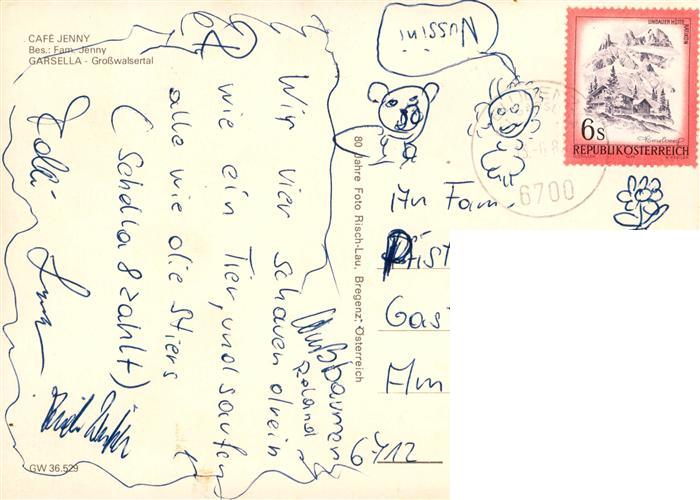 CAFÉ JENNY
Bes.: Fam. Jenny
GARSELLA - Großwalsertal
Wir
vier schauen drein
wie ein Tier, und saufen
alle wie die Stiere
(Schella 8 zahlt)
Nußbaumer
Roland
GW 36.529
80 Jahre Foto Risch-Lau, Bregenz, Österreich
Nussini
LINDAUER HÜTTE
RÄTIKON
6 S
REPUBLIK ÖSTERREICH
6700
An Fam.
Gas
Am
6712